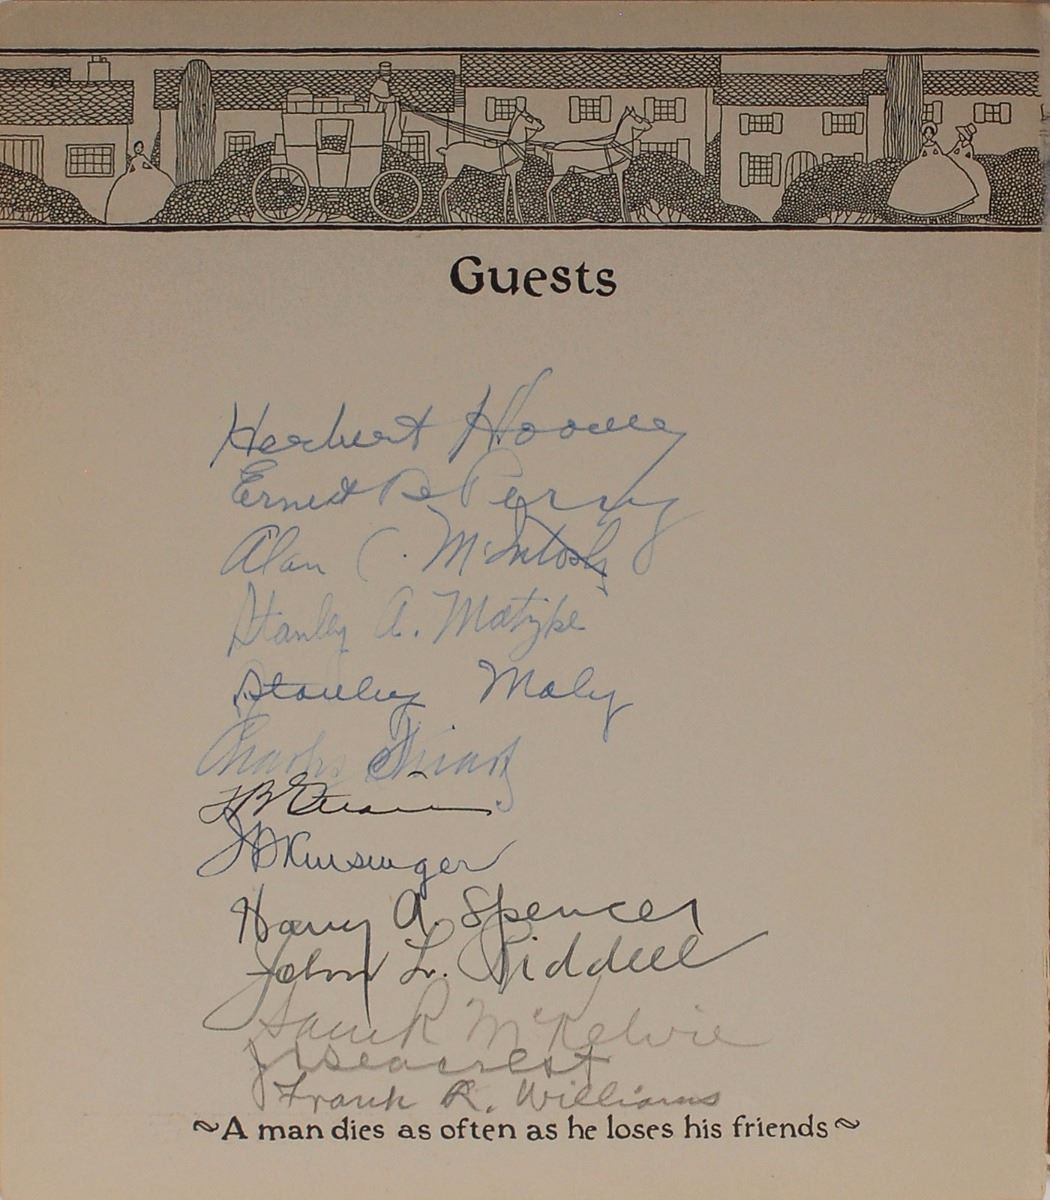 Guests
Herbert Hoover
Ernest B Perry
Alan C. McIntosh
Stanley A. Matzke
Stanley Maly
Charles
J B Kinsinger
Harry A. Spencer
John L. Riddell
Sam R McKelvie
J C Seacrest
Frank R. Williams
~A man dies as often as he loses his friends~